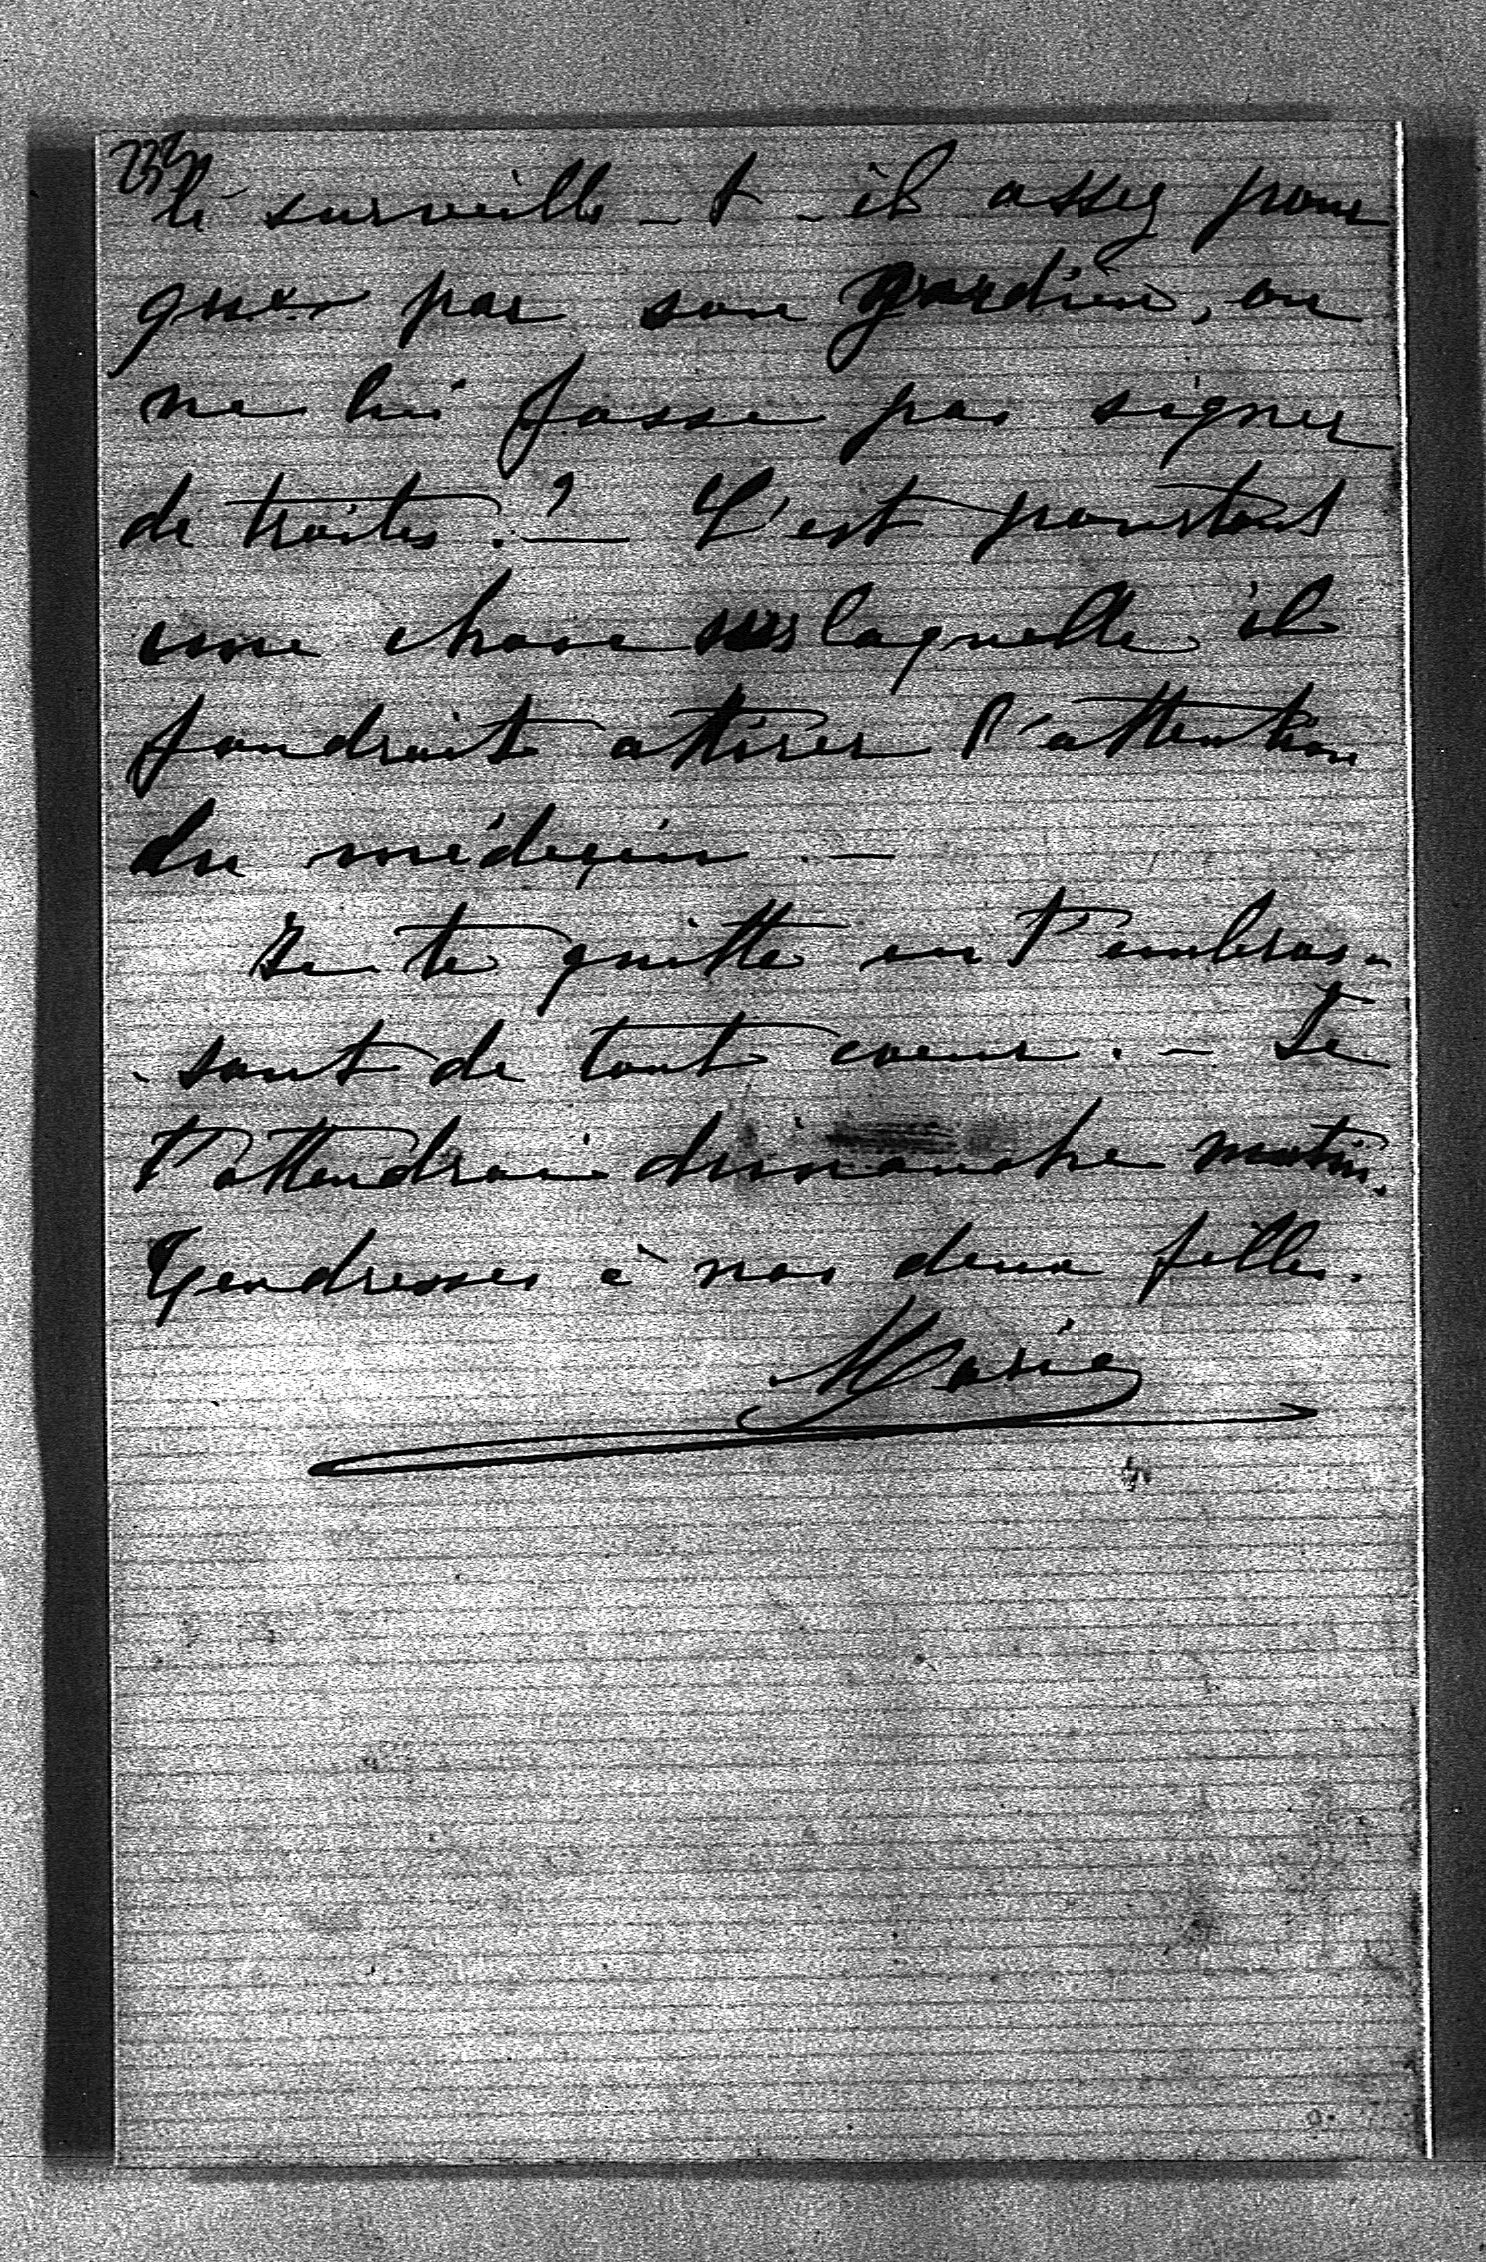 233
le surveille-t-il assez pour
que par son gardien, on
ne lui fasse pas signer
de traites ? — C'est pourtant
une chose sur laquelle il
faudrait attirer l'attention
du médeçin. —
Je te quitte en t'embras-
-sant de tout coeur. — Je
t'attendrai dimanche matin.
Tendresses à nos deux filles.
Marie